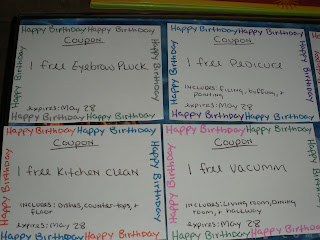 Happy Birthday Happy Birthday
Happy Birthday
Coupon
1 free Eyebrow Pluck
expires: May 28
Happy Birthday Happy Birthday
Happy Birthday
Coupon
1 free Pedicure
Includes: filing, buffing, +
painting
expires: May 28
Happy Birthday Happy Birthday
Happy Birthday
Happy Birthday
Coupon
1 free Kitchen Clean
Includes: Dishes, counter-tops, +
floor
expires: May 28
Happy Birthday
Happy Birthday Happy Birthday
Happy Birthday
Happy Birthday
Coupon
1 free Vacumm
Includes: Living room, Dining
room, + Hallway
expires: May 28
Happy Birthday